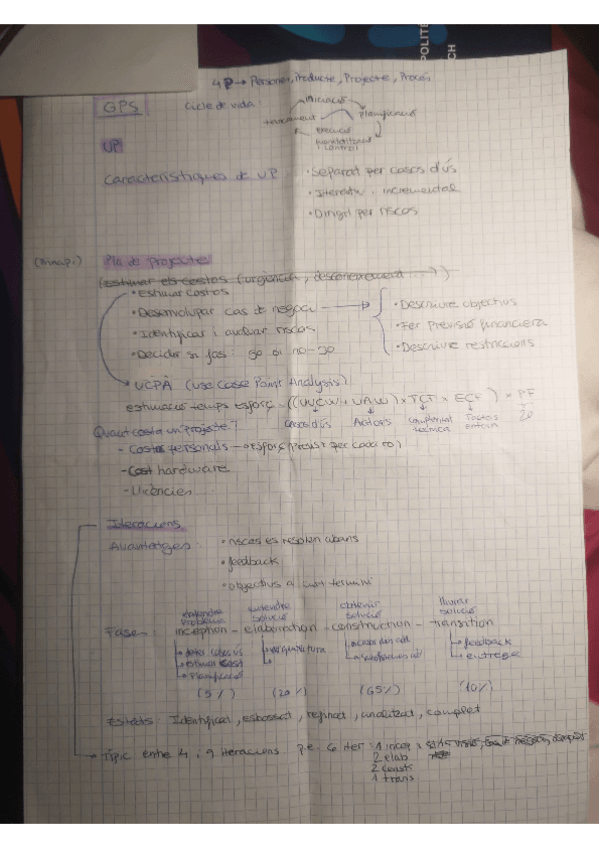 POLITÈ
CH
4 P → Persones, Producte, Projecte, Procés
GPS
Cicle de vida:
Iniciació
Planificació
tancament
execució
monitorització
i control
UP
Característiques de UP
• Separat per casos d'ús
• Iteratiu i incremental
• Dirigit per riscos
(Principi)
Pla de projectes
(estimar els costos (urgència, desconeixement ...))
• Estimar costos
• Desenvolupar cas de negoci →
• Descriure objectius
• Identificar i avaluar riscos
• Fer previsió financera
• Decidir si fas: go or no-go
• Descriure restriccions
UCPA (Use Case Point Analysis)
estimació temps esforç = ((UUCW + UAW) × TCF × ECF) × PF
Casos d'ús
Actors
Complexitat
tècnica
Factors
entorn
20
Quant costa un projecte?
- Costos personals → esforç (
per cada rol)
- Cost hardware
- Llicències
Iteracions
Avantatges:
• riscos es resolen abans
• feedback
• objectius a curt termini
entendre
problema
entendre
solució
obtenir
solució
lliurar
solució
Fases: inception - elaboration - construction - transition
→ estimar cost
→ planificació
→ arquitectura
→ feedback
→ entrega
(5%) (20%) (65%) (10%)
Estats: Identificat, esbossat, refinat, analitzat, complet
→ Típic entre 4 i 9 iteracions p.e. 6 iter: 1 incep
2 elab
2 const
1 trans